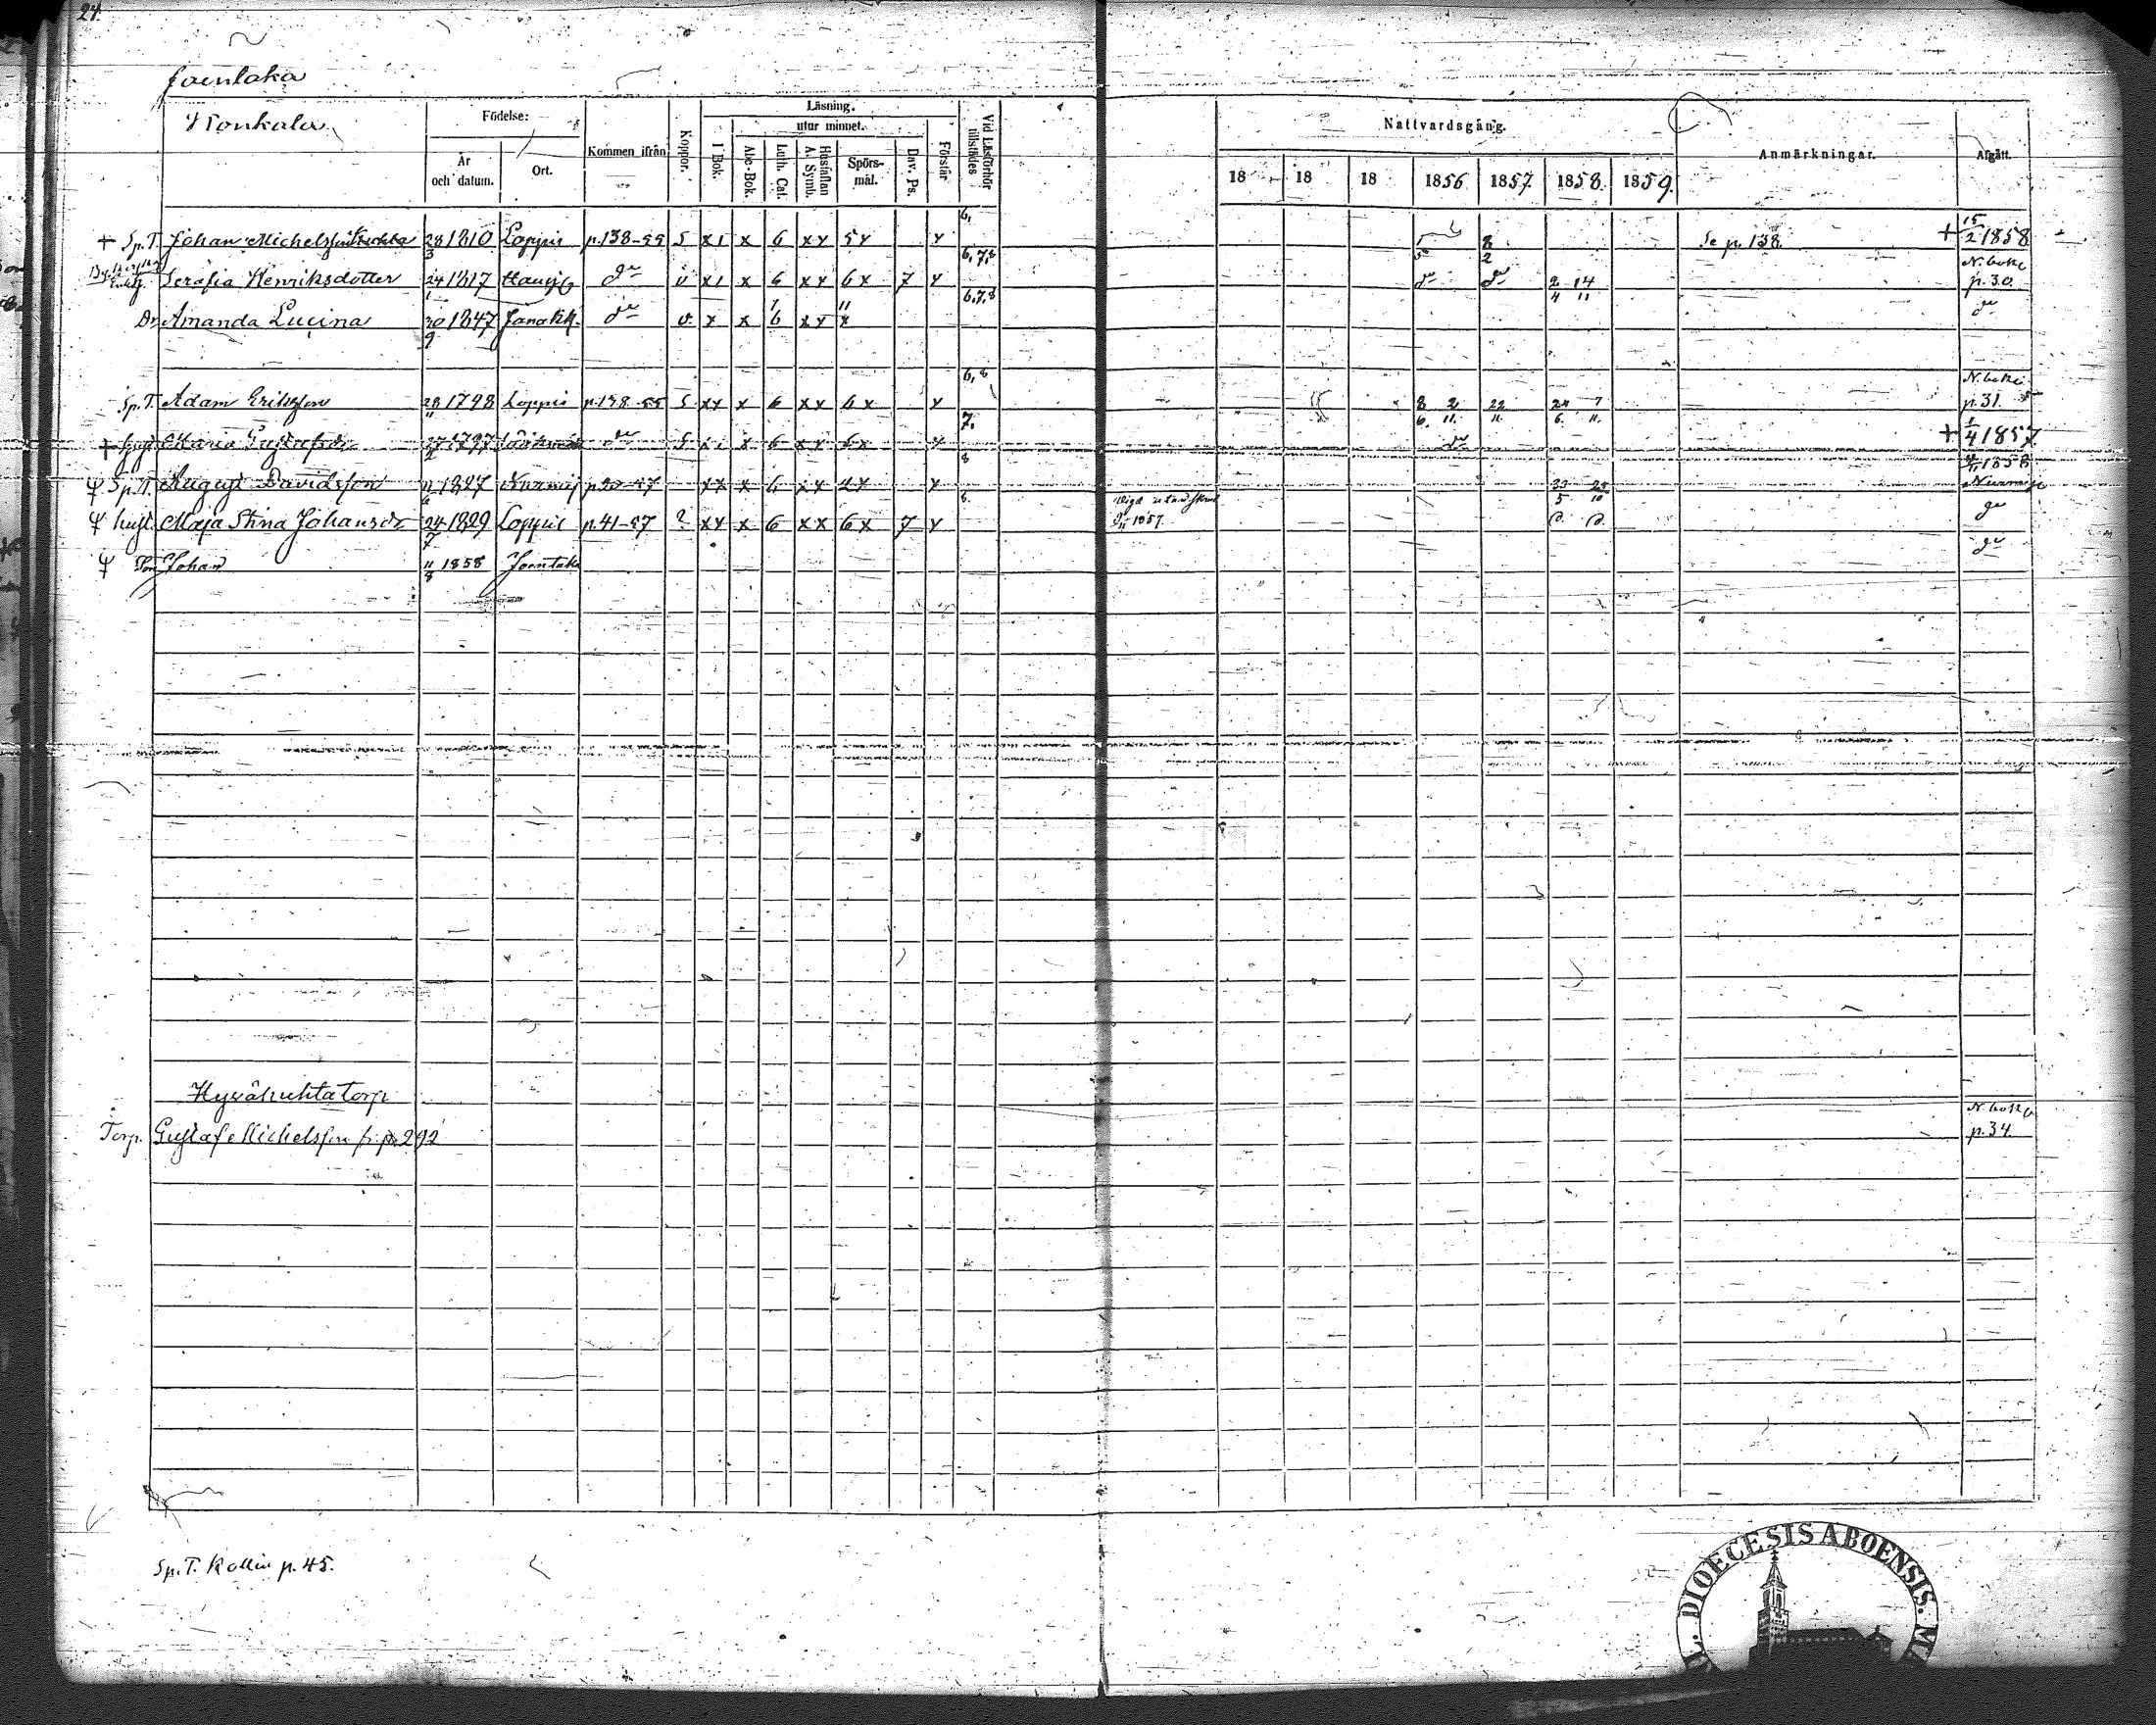 24.
Joentaka
Konkala
Födelse:
År och datum.
Ort.
Kommen ifrån
Koppor.
Läsning.
I Bok.
utur minnet.
Abc-Bok.
Luth. Cat.
Husfaflan A. Symb.
Spörs- mål.
Dav. Ps.
Förstår
Vid Läsförhör tillstädes
Nattvardsgång.
18 18 18 1856 1857. 1858. 1859.
Anmärkningar.
Afgått.
+ Sp.T. Johan Michelsson 28/3 1810 Loppis p.138-55 S x1 x 6 xx 5x x 6, 8/2 Se p. 138. + 15/2 1858
Enkj. Serafia Henriksdotter 24/1 1817 Hausj. do v x1 x 6 xx 6x 7 x 6,7,8 do do 2/4 14/11 N. boke p. 30.
Dr Amanda Lucina 30/9 1847 Janakk. do v. x x 6 xx x 6,7,8 do
Sp.T. Adam Eriksson 28/11 1798 Loppis p.138-55 S xx x 6 xx 6x x 6,8 8/6. 2/11. 22/11. 24/6. 7/11. N. boke p. 31.
+ Maria Gustafsdr 27/2 1797 do S x1 x 6 xx 6x x 7. do + 1/4 1857
Sp.T. August Davidsson 1827 Nurmij p.20-57 xx x 6 xx 2x x 8 23/5 25/10 1858 Nurmij
hust. Maja Stina Johansdr 24/7 1829 Loppis p.41-57 ? xx x 6 xx 6x 7 x 8. Vigd 1857. do
Son Johan 11/8 1858 Joentaka do
Hyvähuhta torp
Torp. Gustaf Michelsson fr. p. 292 N. boke p. 34.
Sp.T. Kallin p. 45.
DIOECESIS ABOENSIS.